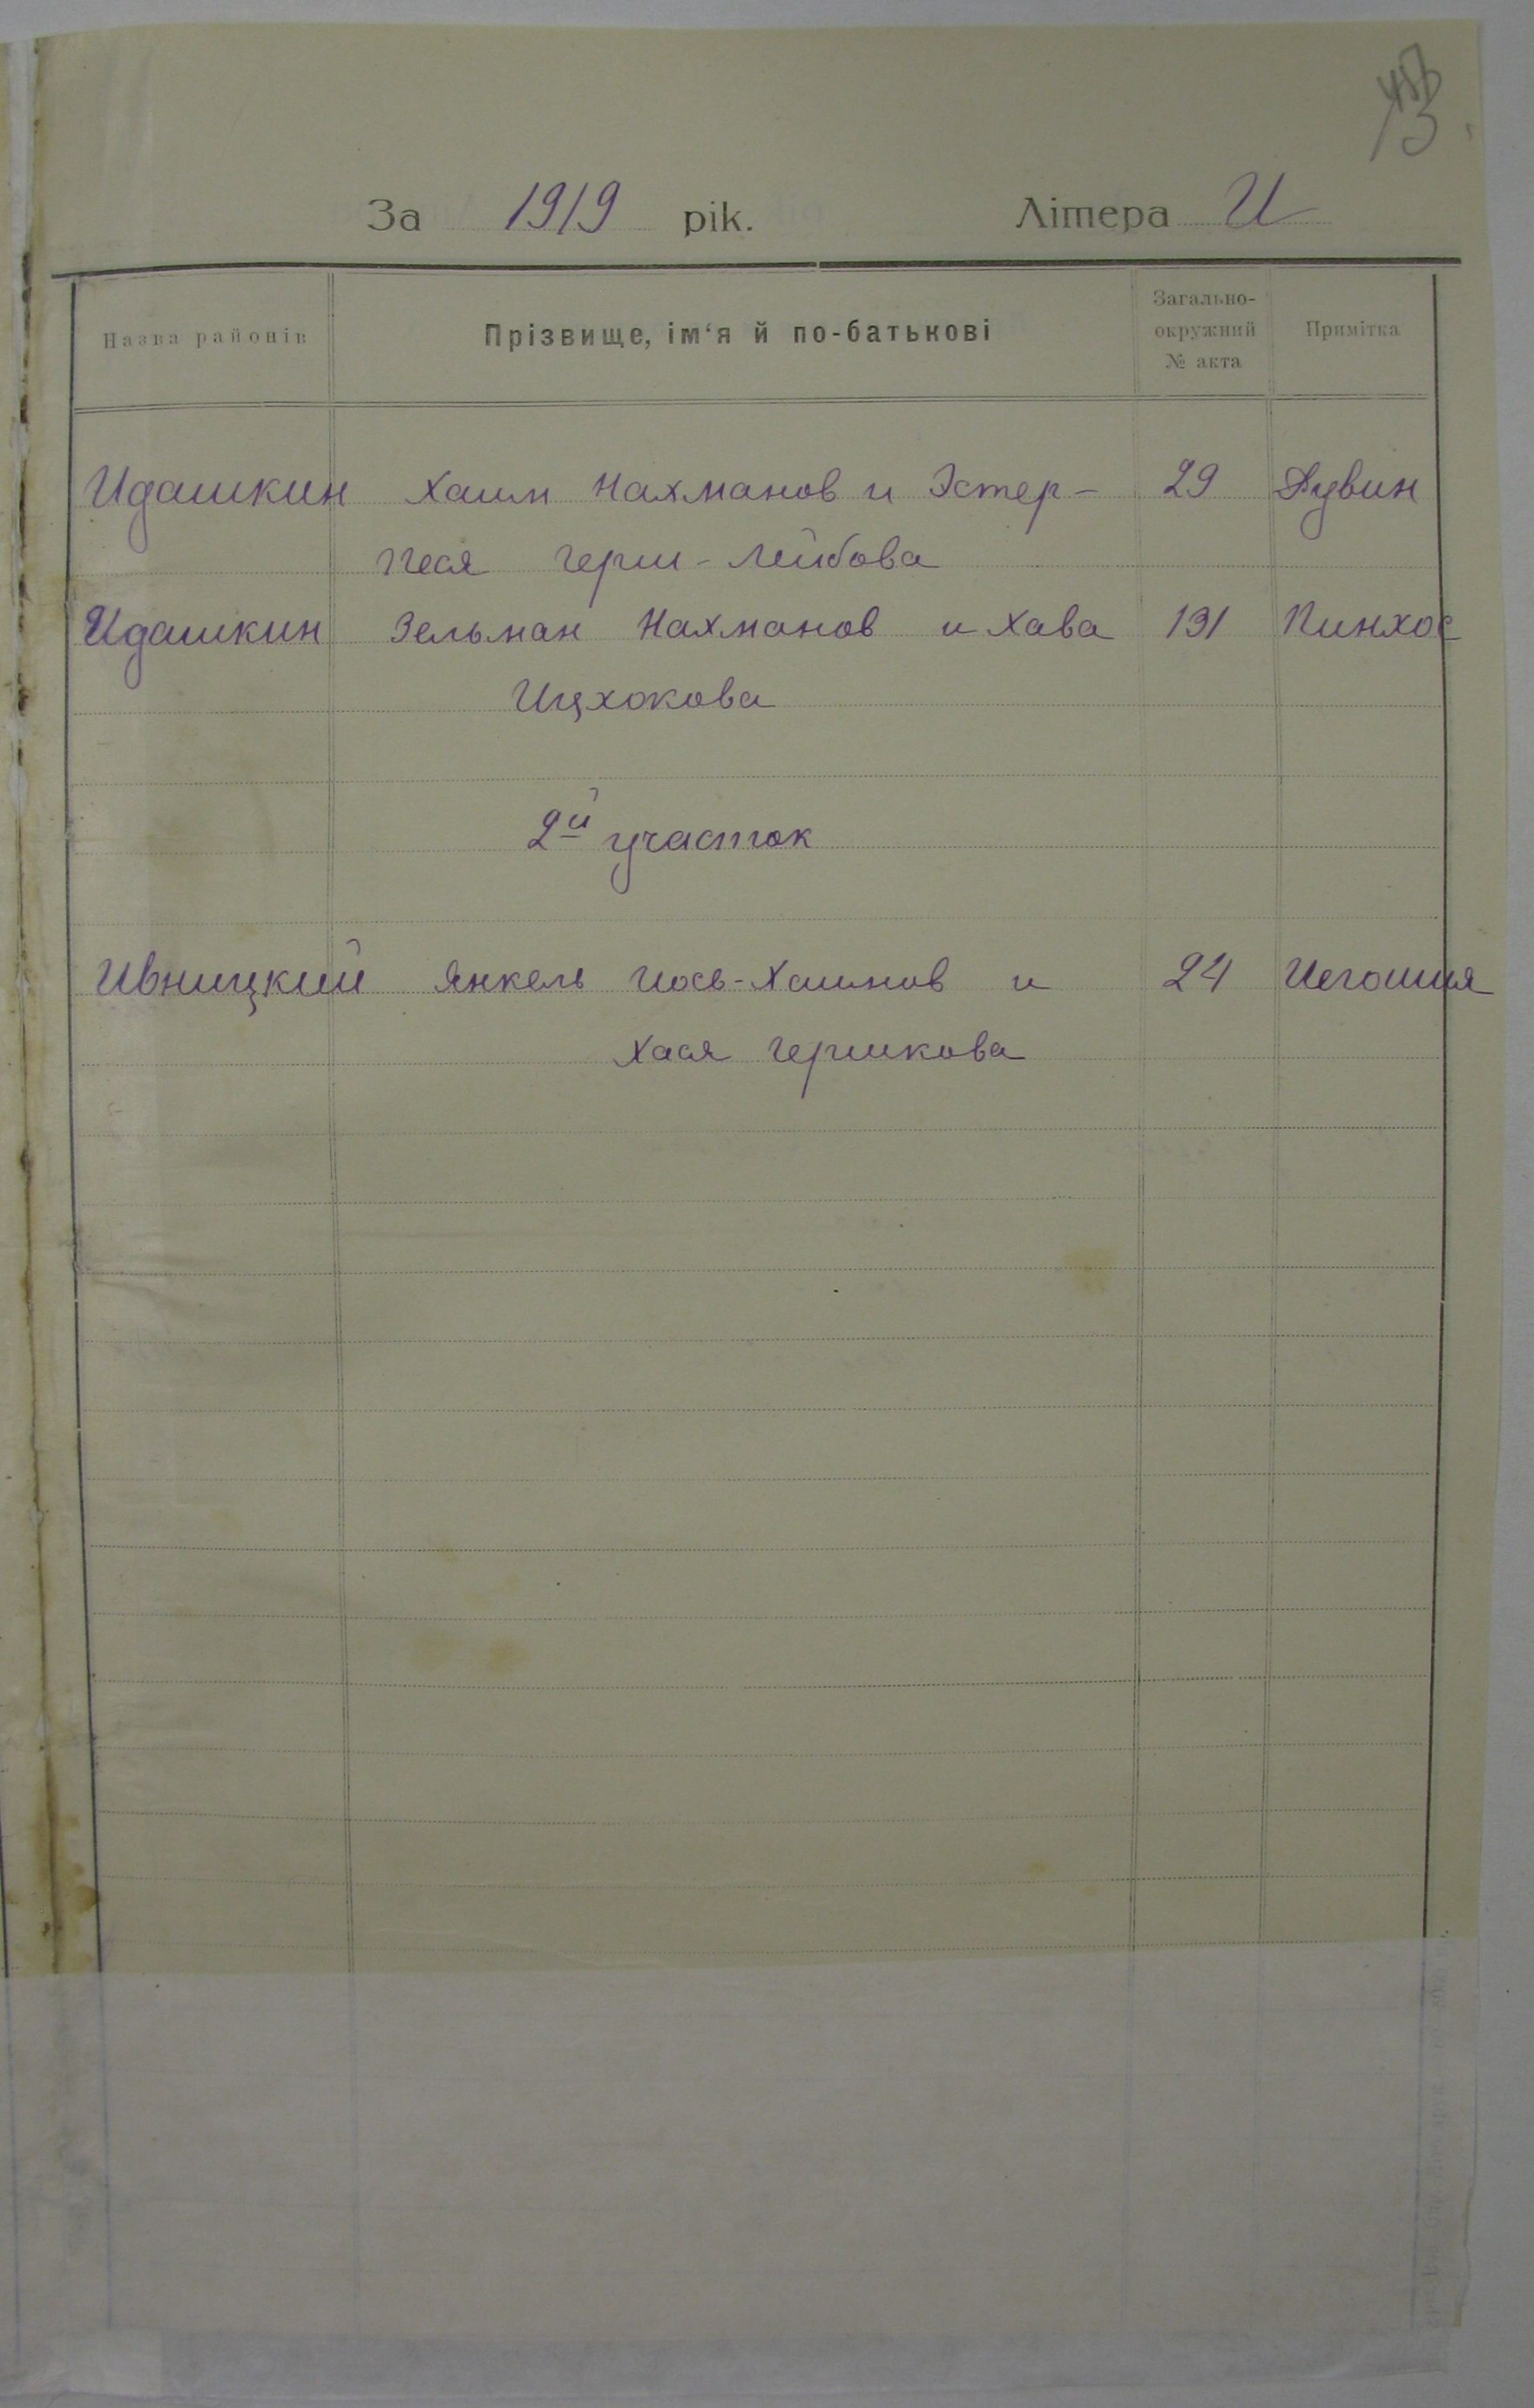 13
За 1919 рік. Літера И
Назва районів Прізвище, ім‘я й по-батькові Загально-окружний № акта Примітка
Идашкин Хаим Нахманов и Эстер- 29 Дувин
Песя Герш-Лейбова
Идашкин Зельман Нахманов и Хава 131 Пинхос
Ицхокова
2й участок
Ивницкий Янкель Иось-Хаимов и 24 Иегошия
Хася Гершкова